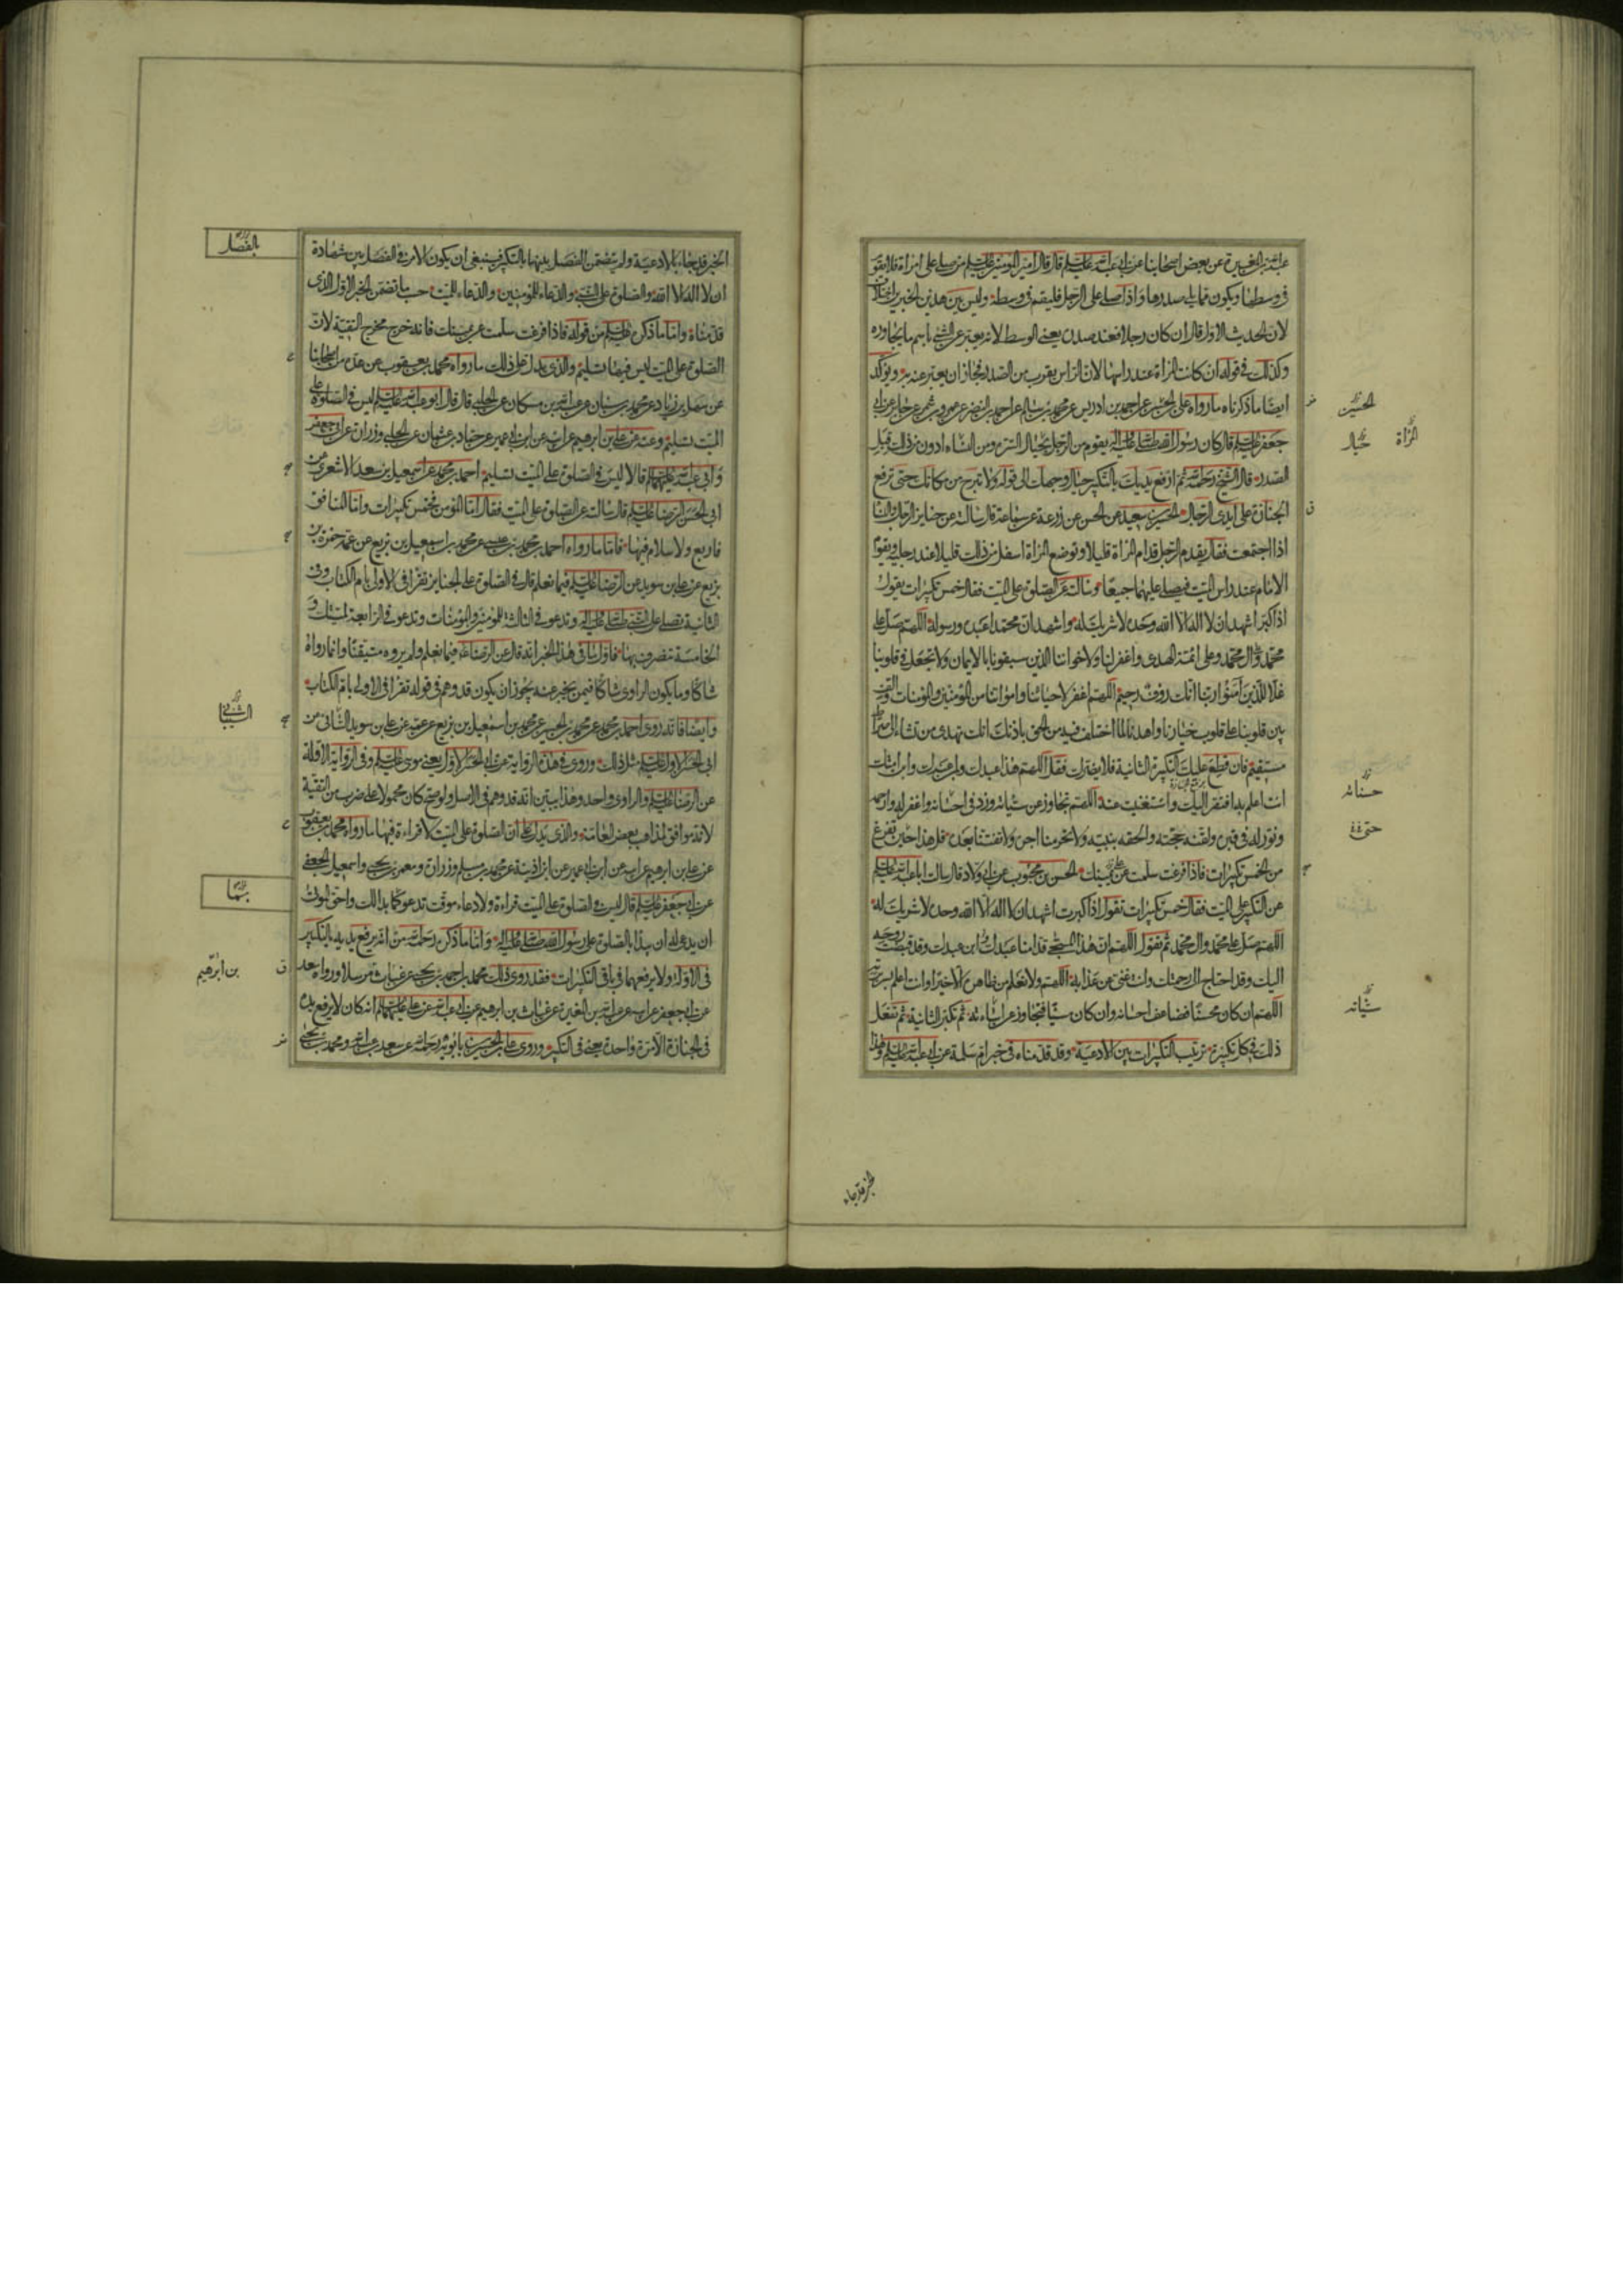 عبد الله بن المغيرة عن بعض اصحابنا عن ابي عبد الله عليه السلم قال قال امير المؤمنين عليه السلم من صلى على امراة فلا يقوم
في وسطها ويكون مما يلي صدرها واذا صلى على الرجل فليقم في وسطه وليس بين هذين الخبرين اختلاف
لان الحديث الاول قال ان كان رجلا فعند صدره يعني الوسط لانه يعبر عن الشئ باسم ما يجاوره
وكذلك في قوله ان كانت المراة عند راسها لان الراس يقرب من الصدر فجاز ان يعبر عنه به ويؤكد
ايضا ما ذكرناه ما رواه على بن الحسين عن احمد بن ادريس عن محمد بن سالم عن احمد بن النضر عن عمرو بن شمر عن جابر عن ابي
جعفر عليه السلم قال كان رسول الله صلى الله عليه واله يقوم من الرجل بحيال السرة ومن النساء ادون من ذلك قبل
الصدر قال الشيخ رحمه الله ثم ارفع يديك بالتكبير حيال وجهك الى قوله ولا تبرح من مكانك حتى ترفع
الجنازة على ايدى الرجال الحسين بن سعيد عن الحسن عن زرعة عن سماعة قال سالته عن جنايز الرجال والنسا
اذا اجتمعت فقال يقدم الرجل قدام المراة قليلا وتوضع المراة اسفل من ذلك قليلا عند رجليه ويقوم
الامام عند راس الميت فيصلي عليهما جميعا وسالته عن الصلوة على الميت فقال خمس تكبيرات يقول
اذا كبر اشهد ان لا اله الا الله وحده لا شريك له واشهد ان محمدا عبده ورسوله اللهم صل على
محمد وآل محمد وعلى ائمة الهدى واغفر لنا ولاخواننا الذين سبقونا بالايمان ولا تجعل في قلوبنا
غلا للذين آمنوا ربنا انك رؤف رحيم اللهم اغفر لاحيائنا وامواتنا من المؤمنين والمؤمنات والف
بين قلوبنا على قلوب خيارنا واهدنا لما اختلف فيه من الحق باذنك انك تهدى من تشاء الى صراط
مستقيم فان قطع عليك التكبيرة الثانية فلا يضرك فقل اللهم هذا عبدك وابن عبدك وابن امتك
انت اعلم به افتقر اليك واستغنيت عنه اللهم تجاوز عن سيئاته وزد في احسانه واغفر له وارحمه
ونور له في قبره ولقنه حجته والحقه بنبيه ولا تحرمنا اجره ولا تفتنا بعده قل هذا حين تفرغ
من الخمس تكبيرات فاذا فرغت سلمت عن يمينك الحسن بن محبوب عن ابي ولاد قال سالت ابا عبد الله عليه السلم
عن التكبير على الميت فقال خمس تكبيرات تقول اذا كبرت اشهد ان لا اله الا الله وحده لا شريك له
اللهم صل على محمد وال محمد ثم تقول اللهم ان هذا المسجى قدامنا عبدك وابن عبدك وقد قبضت روحه
اليك وقد احتاج الى رحمتك وانت غني عن عذابه اللهم ولا نعلم من ظاهره الا خيرا وانت اعلم بسريرته
اللهم ان كان محسنا فضاعف احسانه وان كان مسيئا فتجاوز عن اساءته ثم تكبر الثانية ثم تفعل
ذلك في كل تكبيرة ترتيب التكبيرات بين الادعية وقد قدمناه في خبر ام سلمة عن ابي عبد الله عليه السلم وهذا
الحسين
المراة
حيال
حسناته
سيئاته
الخبر قد جاء
الخبر قد جاء بالادعية ولم يتضمن الفصل بينها بالتكبير فينبغي ان يكون الامر في الفصل بين شهادة
ان لا اله الا الله والصلوة على النبي والدعاء للمؤمنين والدعاء للميت حسب ما تضمن الخبر الاول الذى
قدمناه واما ما ذكره عليه السلم من قوله فاذا فرغت سلمت عن يمينك فانه خرج مخرج التقية لان
الصلوة على الميت ليس فيها تسليم والذى يدل على ذلك ما رواه محمد بن يعقوب عن عدة من اصحابنا
عن سهل بن زياد عن محمد بن سنان عن عبد الله بن مسكان عن الحلبي قال قال ابو عبد الله عليه السلم ليس في الصلوة على
الميت تسليم وعنه عن علي بن ابرهيم عن ابيه عن ابن ابي عمير عن حماد بن عثمان عن الحلبي وزرارة عن ابي جعفر
وابي عبد الله عليهما السلم قالا ليس في الصلوة على الميت تسليم احمد بن محمد عن اسمعيل بن سعد الاشعرى عن
ابي الحسن الرضا عليه السلم قال سالته عن الصلوة على الميت فقال اما المؤمن فخمس تكبيرات واما المنافق
فاربع ولا سلام فيها فاما ما رواه احمد بن محمد بن عيسى عن محمد بن اسمعيل بن بزيع عن عمه حمزة بن
بزيع عن علي بن سويد عن الرضا عليه السلم فيما نعلم قال في الصلوة على الجنايز تقرأ في الاولى بام الكتاب وفي
الثانية تصلي على النبي صلى الله عليه واله وتدعو في الثالثة للمؤمنين والمؤمنات وتدعو في الرابعة لميتك و
الخامسة تنصرف بها فاول ما في هذا الخبر انه قال عن الرضا فيما نعلم ولم يروه متيقنا وانما رواه
شاكا وما يكون الراوى شاكا فيمن يخبر عنه يجوز ان يكون قد وهم في قوله تقرأ في الاولى بام الكتاب
وايضا فانه روى احمد بن محمد عن محمد بن الحسين عن محمد بن اسمعيل بن بزيع عن عمه عن علي بن سويد السائى عن
ابي الحسن الاول عليه السلم مثل ذلك وروى في هذه الرواية عن ابي الحسن الاول يعني موسى عليه السلم وفي الرواية الاولة
عن الرضا عليه السلم والراوى واحد وهذا يبين انه قد وهم في الاصل ولو صح كان محمولا على ضرب من التقية
لانه موافق لمذاهب بعض العامة والذى يدل على ان الصلوة على الميت لا قراءة فيها ما رواه محمد بن يعقوب
عن علي بن ابرهيم عن ابيه عن ابن ابي عمير عن ابن اذينة عن محمد بن مسلم وزرارة ومعمر بن يحيى واسمعيل الجعفي
عن ابي جعفر عليه السلم قال ليس في الصلوة على الميت قراءة ولا دعاء موقت تدعو كما بدا لك واحق الموتى
ان يدعى له ان يبدأ بالصلوة على رسول الله صلى الله عليه واله واما ما ذكره رحمه الله من انه يرفع يديه بالتكبير
في الاولة ولا يرفعهما في باقي التكبيرات فقد روى ذلك محمد بن احمد بن يحيى عن غياث مرسلا ورواه سعد
عن ابي جعفر عن ابيه عن عبد الله بن المغيرة عن غياث بن ابرهيم عن ابي عبد الله عن علي عليهما السلم انه كان لا يرفع يده
في الجنازة الا مرة واحدة يعني في التكبير وروى علي بن الحسين بن بابويه رحمه الله عن سعد بن عبد الله ومحمد بن يحيى
بالفصل
الشيباني
بهما
بن ابرهيم